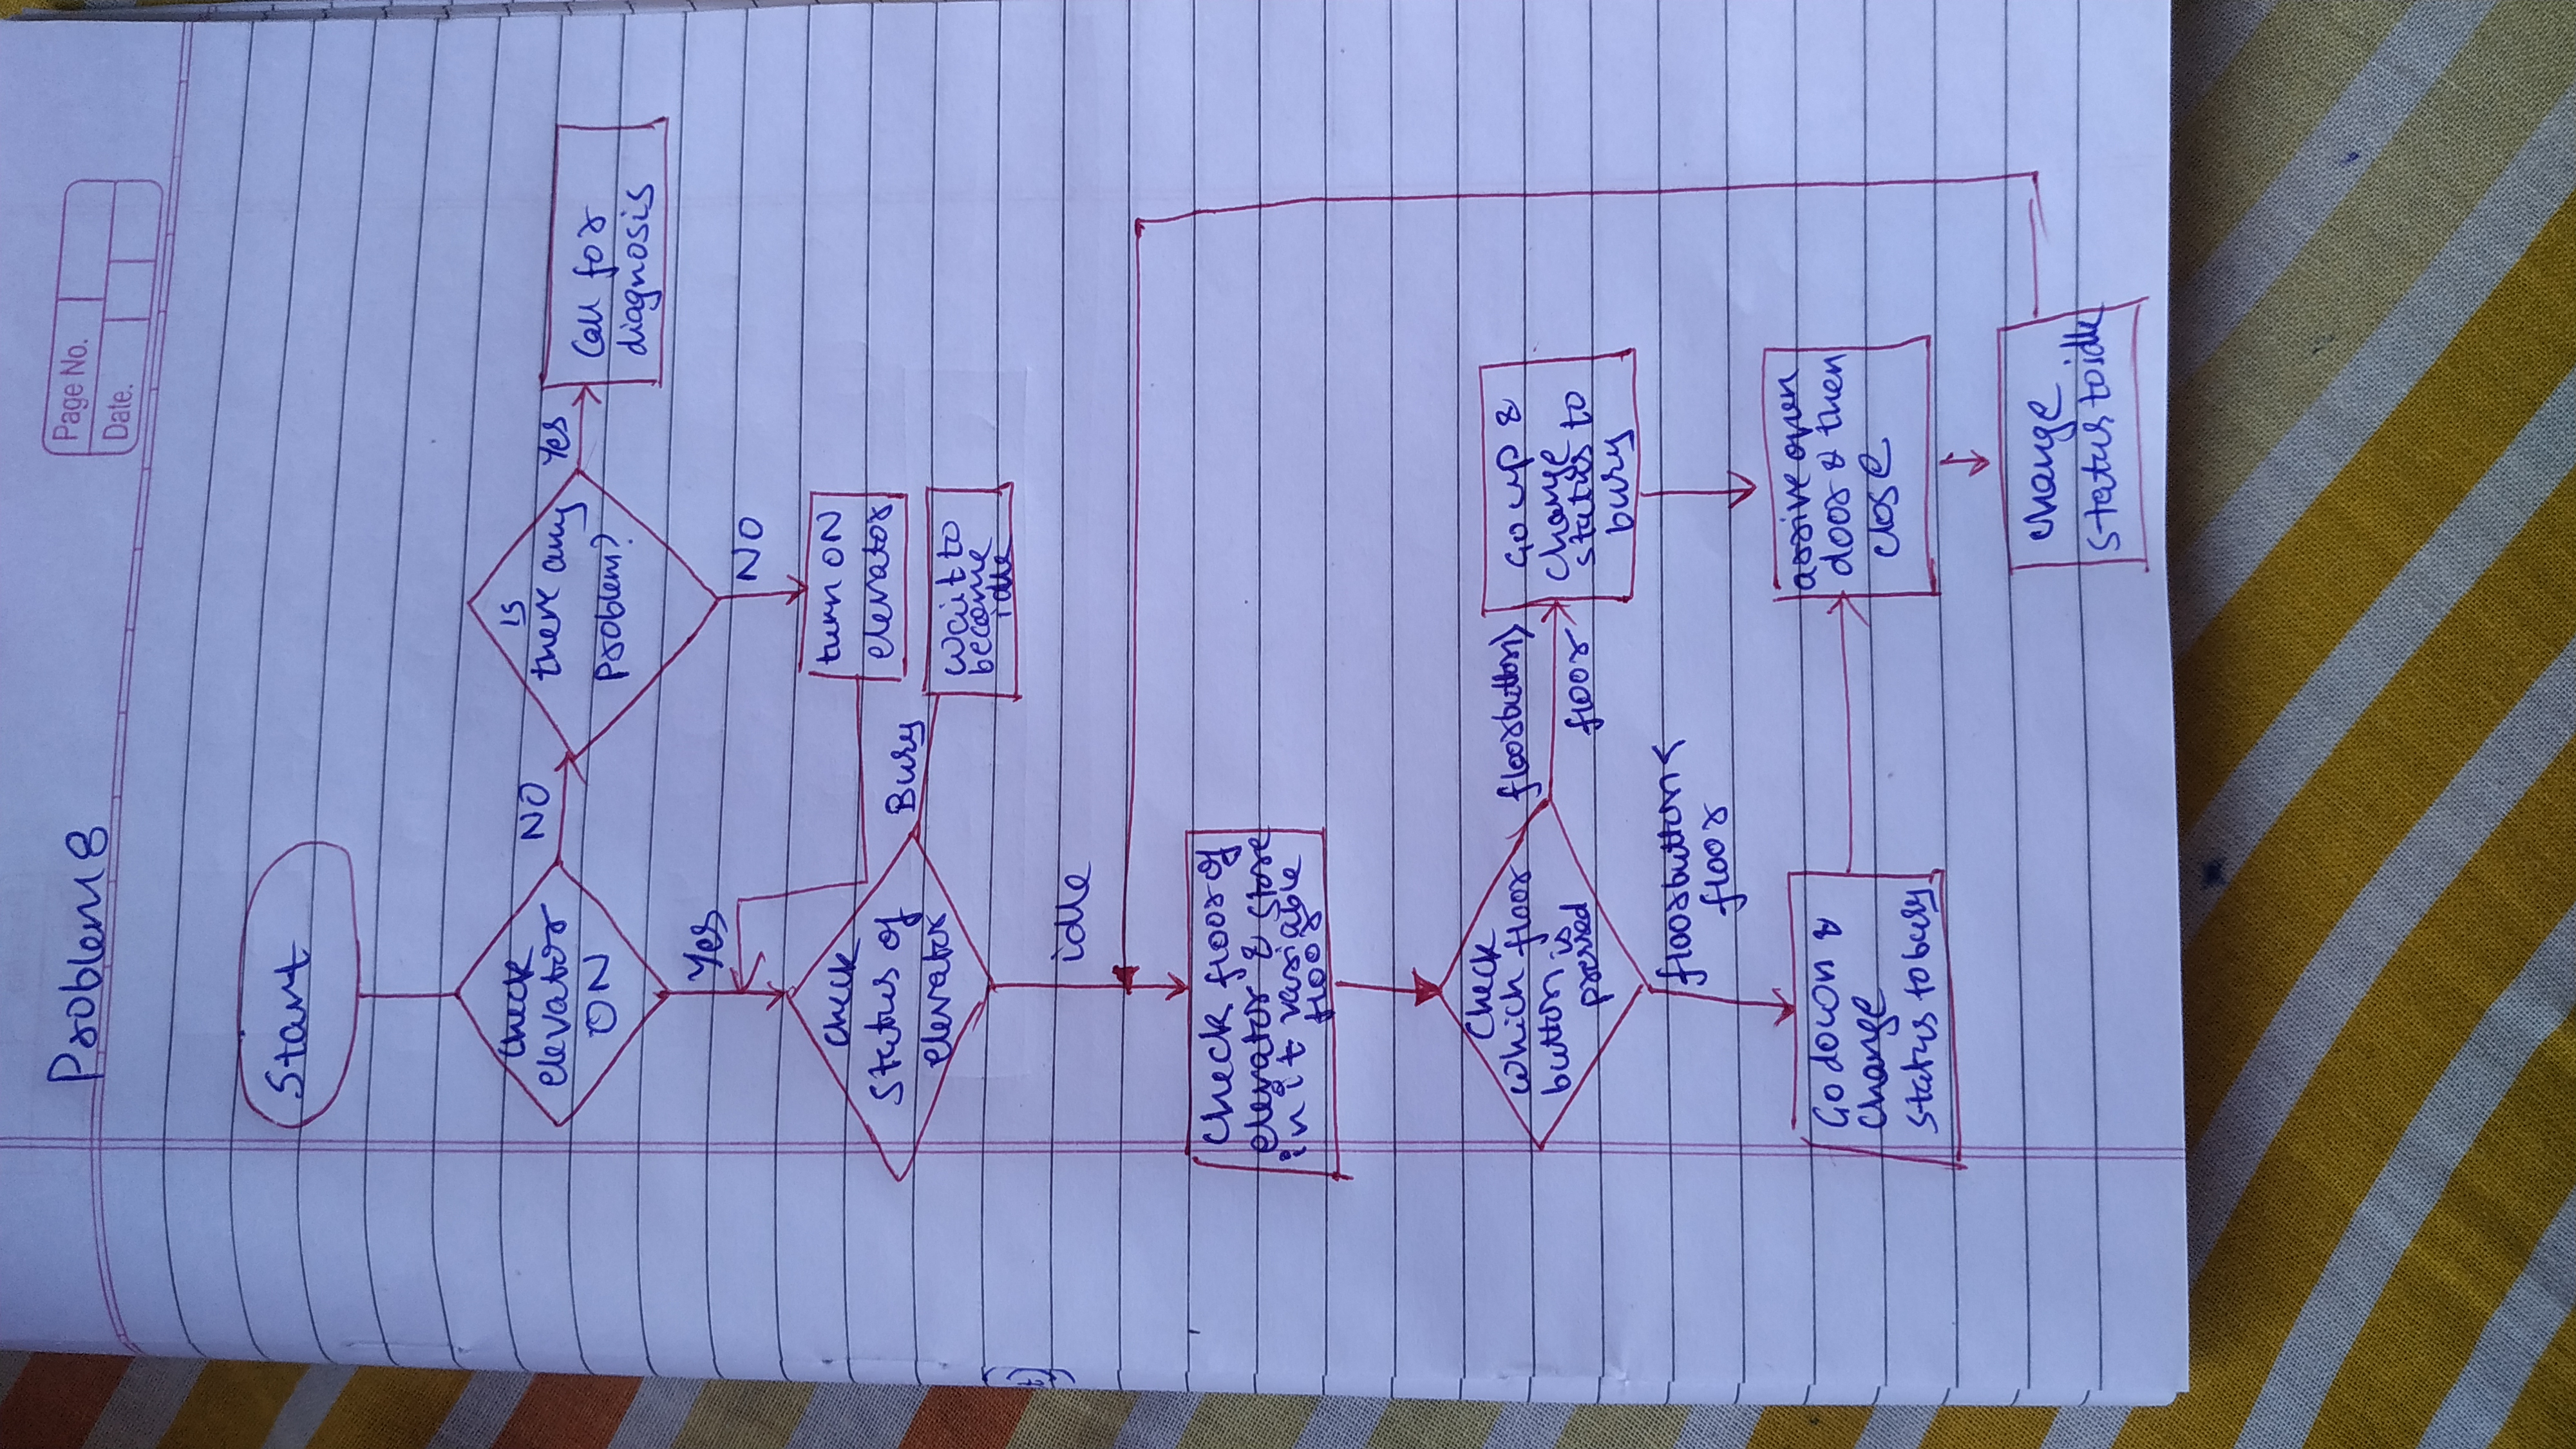 Page No.
Date.
Problem 8
Start
Check
elevator
ON
NO
is
there any
problem?
Yes
Call for
diagnosis
Yes
NO
turn ON
elevator
Check
Status of
elevator
Busy
wait to
become
idle
idle
Check floor of
elevator & store
in it variable
floor
Check
which floor
button is
pressed
floorbutton>
floor
Go up &
change
status to
busy
floorbutton<
floor
Go down &
change
status to busy
arrive open
door & then
close
change
status to idle